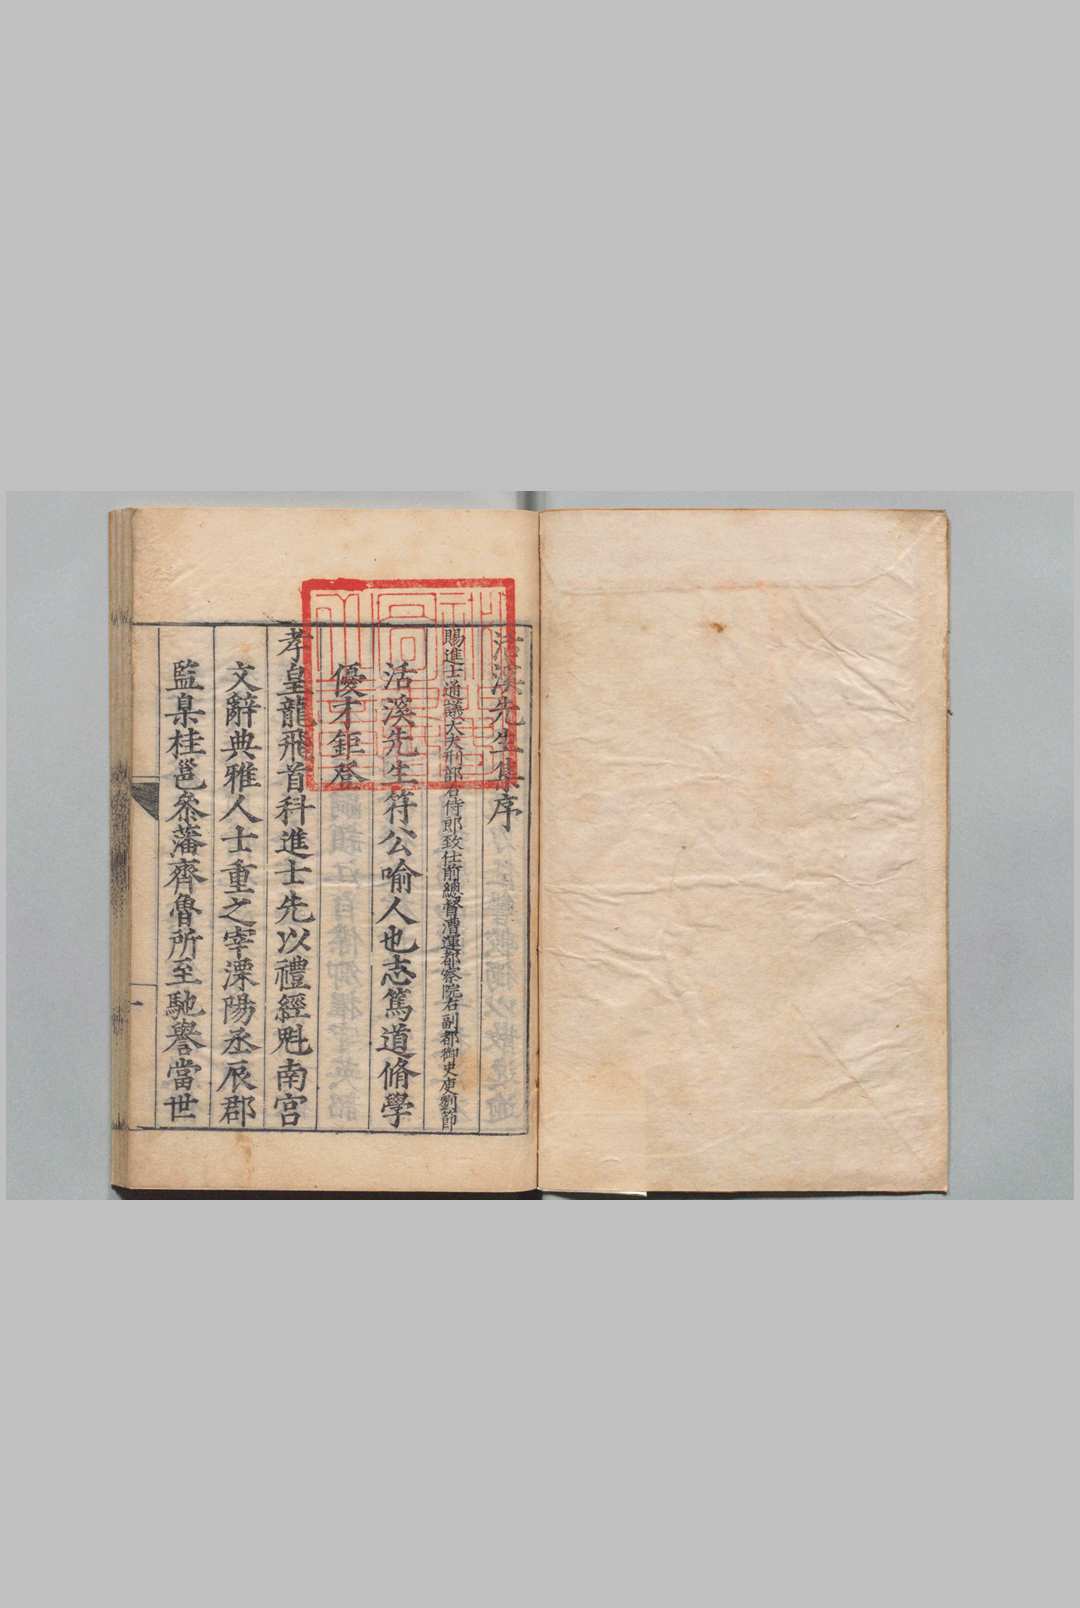 活溪先生集序
賜進士通議大夫刑部右侍郎致仕前總督漕運都察院右副都御史庾劉節
活溪先生符公喻人也志篤道脩學
優才鉅登
孝皇龍飛首科進士先以禮經魁南宮
文辭典雅人士重之宰溧陽丞辰郡
監臬桂邕叅藩齊魯所至馳譽當世
一